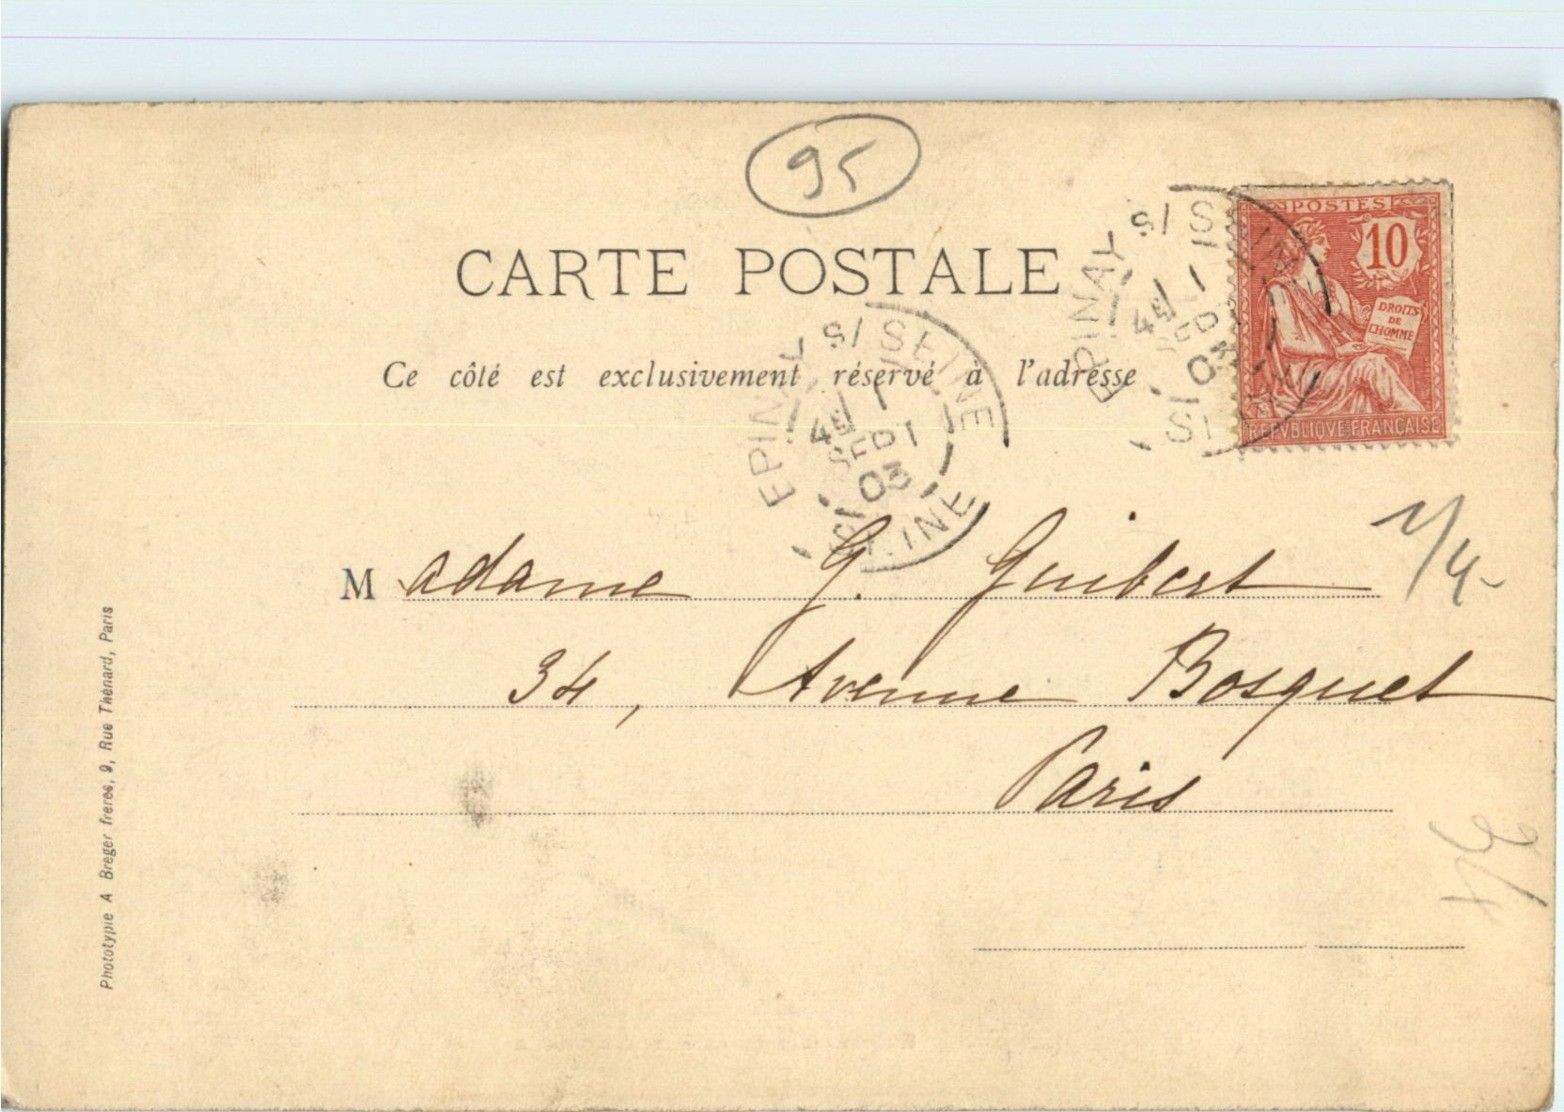 95
CARTE POSTALE
Ce côté est exclusivement réservé à l'adresse
POSTES
10
DROITS
DE
L'HOMME
REPVBLIQVE FRANÇAISE
EPINAY S/ SEINE
4E
1
SEPT
03
SEINE
EPINAY S/ SEINE
4E
1
SEPT
03
SEINE
Madame G. Guibert
34, Avenue Bosquet
Paris
Phototypie A Breger freres, 9, Rue Thénard, Paris